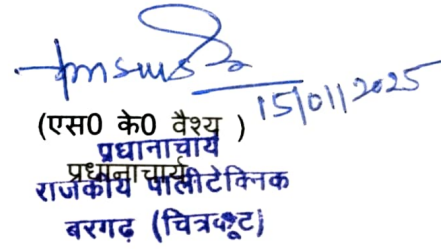 15/01/2025
(एस0 के0 वैश्य )
प्रधानाचार्य
प्रधानाचार्य
राजकीय पालीटेक्निक
बरगढ़ (चित्रकूट)